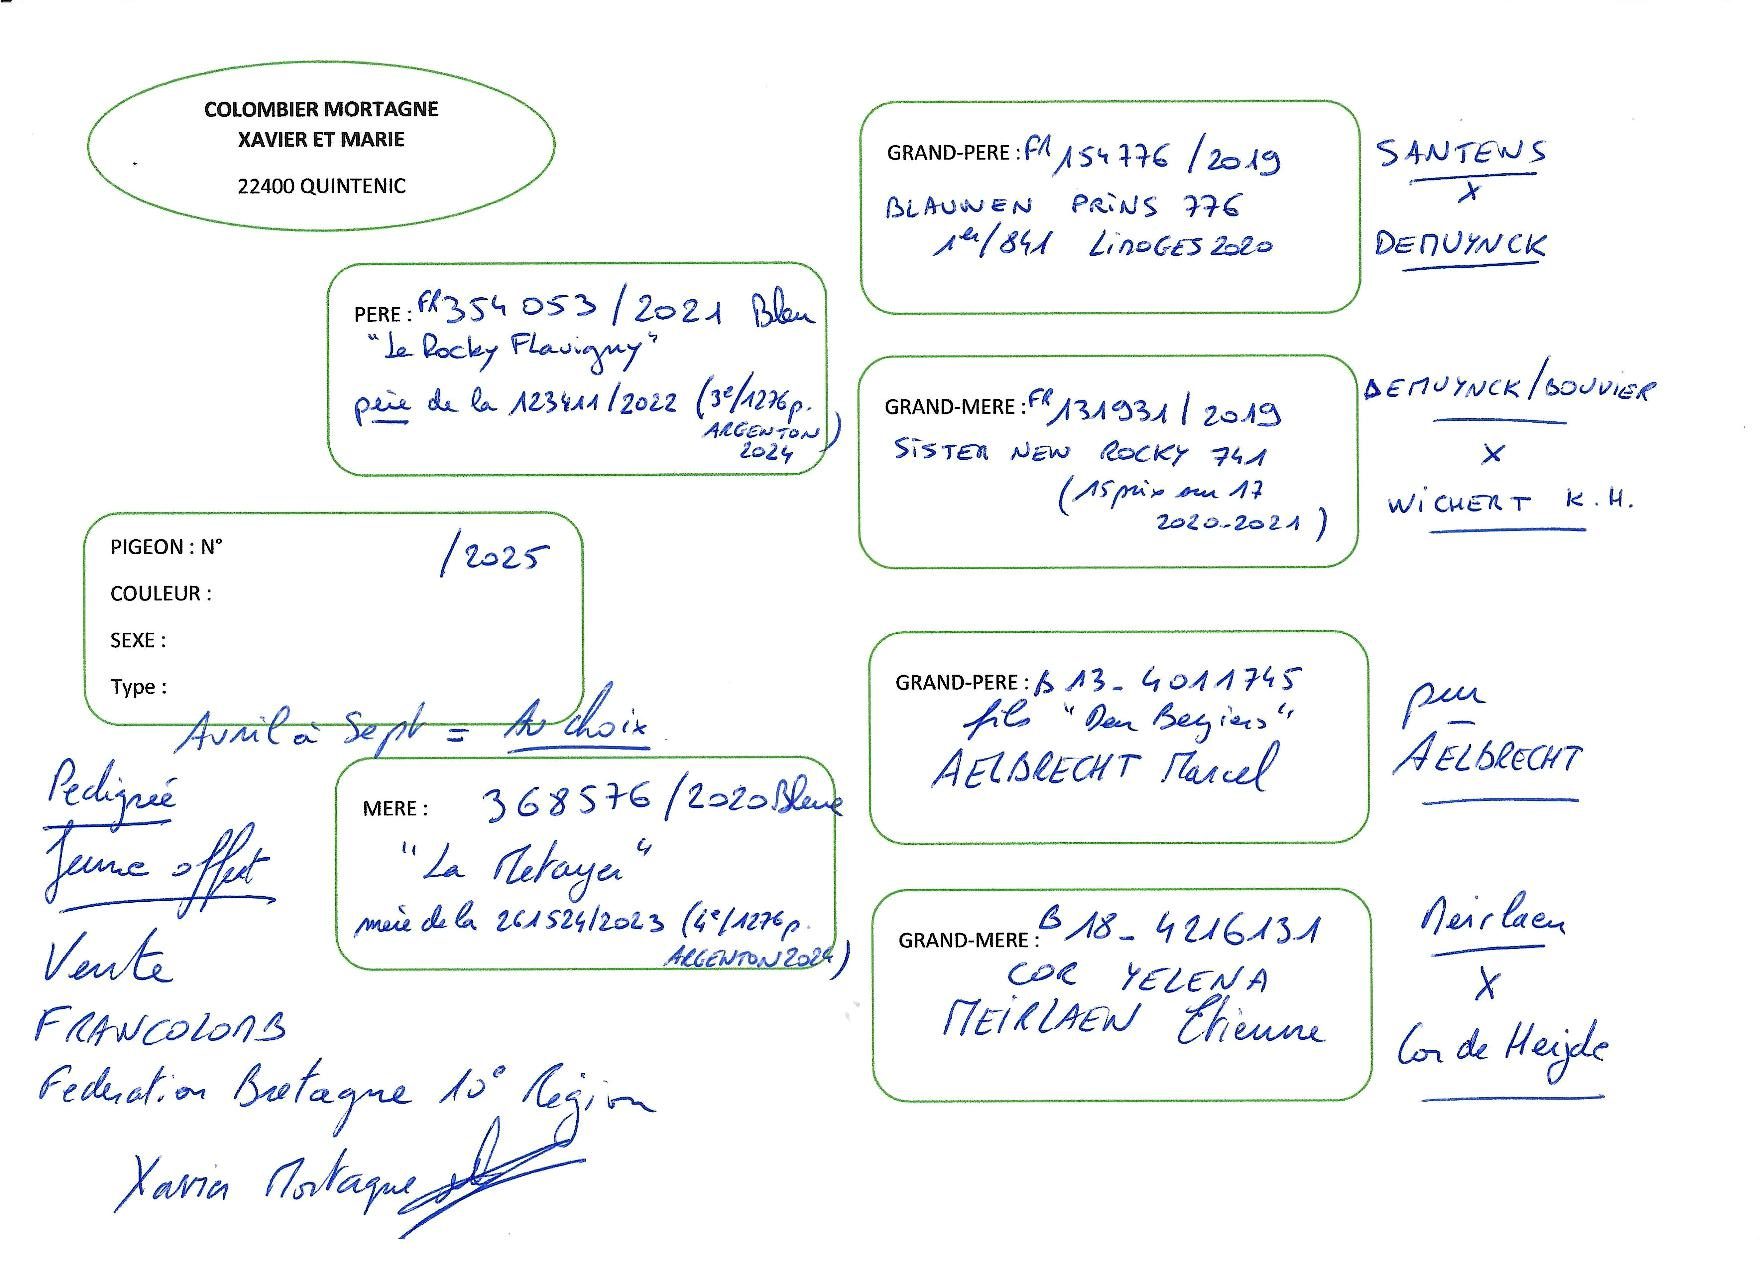 COLOMBIER MORTAGNE
XAVIER ET MARIE
22400 QUINTENIC
GRAND-PERE : FR 154776 / 2019
BLAUWEN PRINS 776
1er/841 LIMOGES 2020
SANTENS
X
DEMUYNCK
PERE : FR 354 053 / 2021 Bleu
"Le Rocky Flavigny"
père de la 123411/2022 (3e/1276p.
ARGENTON)
2024
GRAND-MERE : FR 131931 / 2019
SISTER NEW ROCKY 741
(15 prix sur 17
2020-2021)
DEMUYNCK/BOUVIER
X
WICHERT K.H.
PIGEON : N° /2025
COULEUR :
SEXE :
Type :
Avril à Sept = Au choix
GRAND-PERE : B 13-4011745
fils "Den Beziers"
AELBRECHT Marcel
pur
AELBRECHT
MERE : 368576/2020 Bleue
"La Metayer"
mère de la 261524/2023 (4e/1276p.
ARGENTON 2024)
GRAND-MERE : B 18-4216131
COR YELENA
MEIRLAEN Etienne
Meirlaen
X
Cor de Heijde
Pedigrée
Jeune offert
Vente
FRANCOLOMB
Federation Bretagne 10e Région
Xavier Mortagne